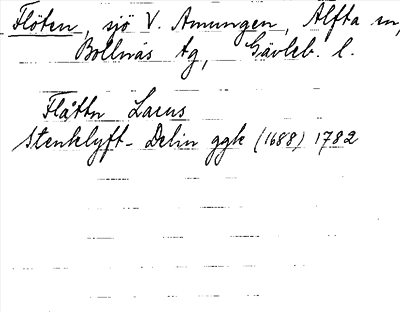 Flöten, sjö V. Amungen, Alfta sn,
Bollnäs tg, Gävleb. l.
Flåttn Lacus
Stenklyft- Delin ggk (1688) 1782